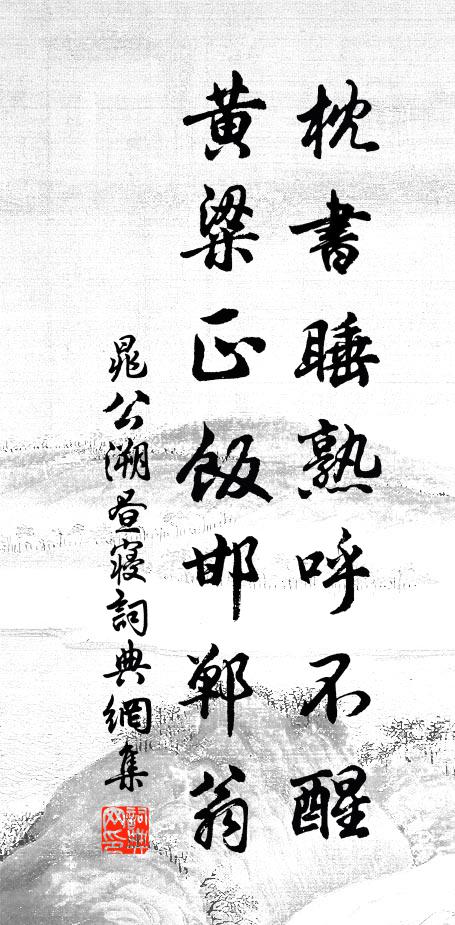 枕書睡熟呼不醒
黃粱正飯邯鄲翁
晁公溯晝寢詞典網集